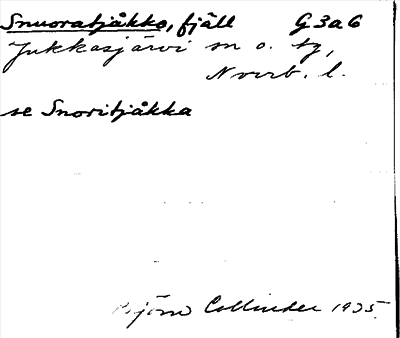 Snuoratjåkko, fjäll G3a6
Jukkasjärvi sn o. tg,
Nvrrb. l.
se Snoritjåkka
Björn Collinder 1935